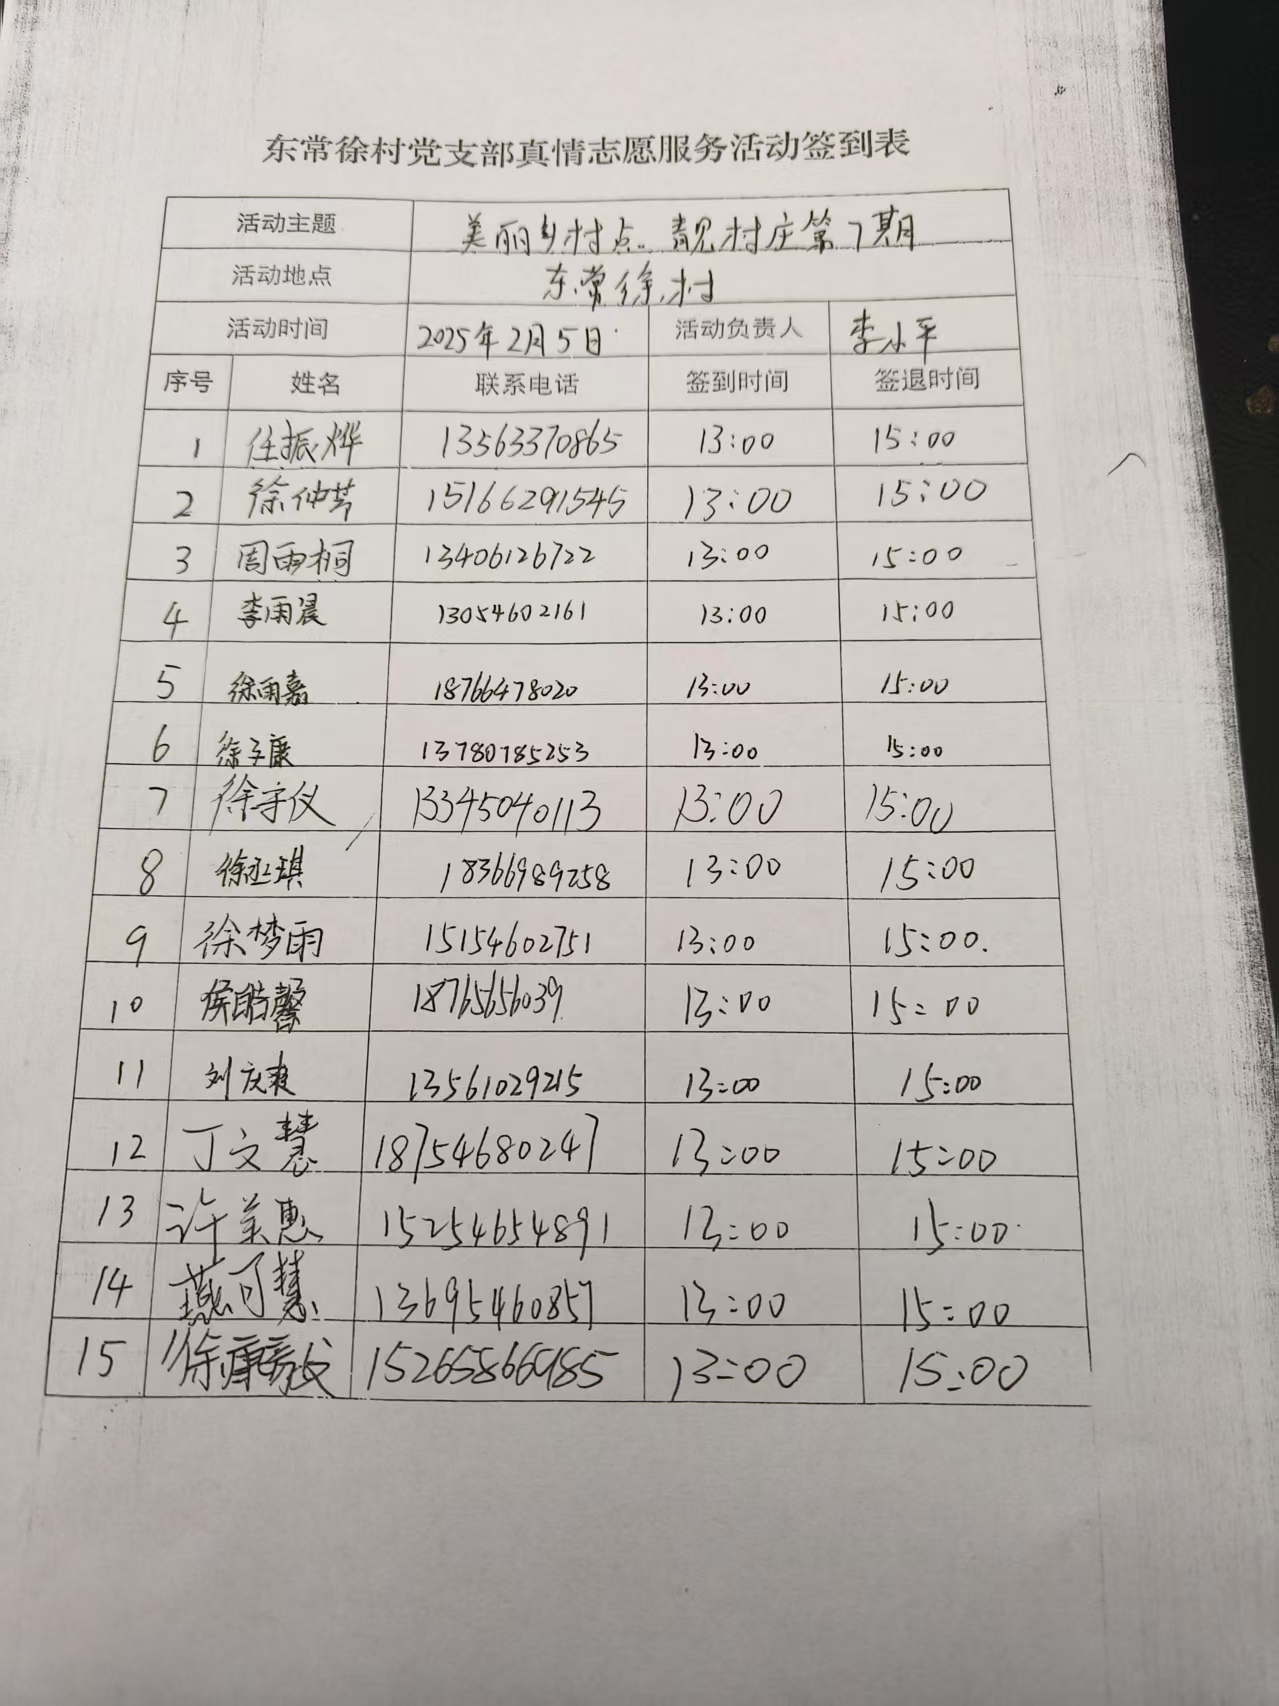 东常徐村党支部真情志愿服务活动签到表
活动主题 美丽乡村点靓村庄第7期
活动地点 东常徐村
活动时间 2025年2月5日 活动负责人 李小平
序号 姓名 联系电话 签到时间 签退时间
1 任振烨 13563370865 13:00 15:00
2 徐仲芸 15166291545 13:00 15:00
3 周雨桐 13406126722 13:00 15:00
4 李雨晨 13054602161 13:00 15:00
5 徐雨嘉 18766478020 13:00 15:00
6 徐子康 13780785253 13:00 15:00
7 徐守仪 13345040113 13:00 15:00
8 徐丞琪 18366989258 13:00 15:00
9 徐梦雨 15154602751 13:00 15:00.
10 侯皓馨 18765656039 13:00 15:00
11 刘庆爽 13561029215 13:00 15:00
12 丁文慧 18754680247 13:00 15:00
13 许美惠 15254654891 13:00 15:00
14 燕可慧 13695460857 13:00 15:00
15 徐 13:00 15:00